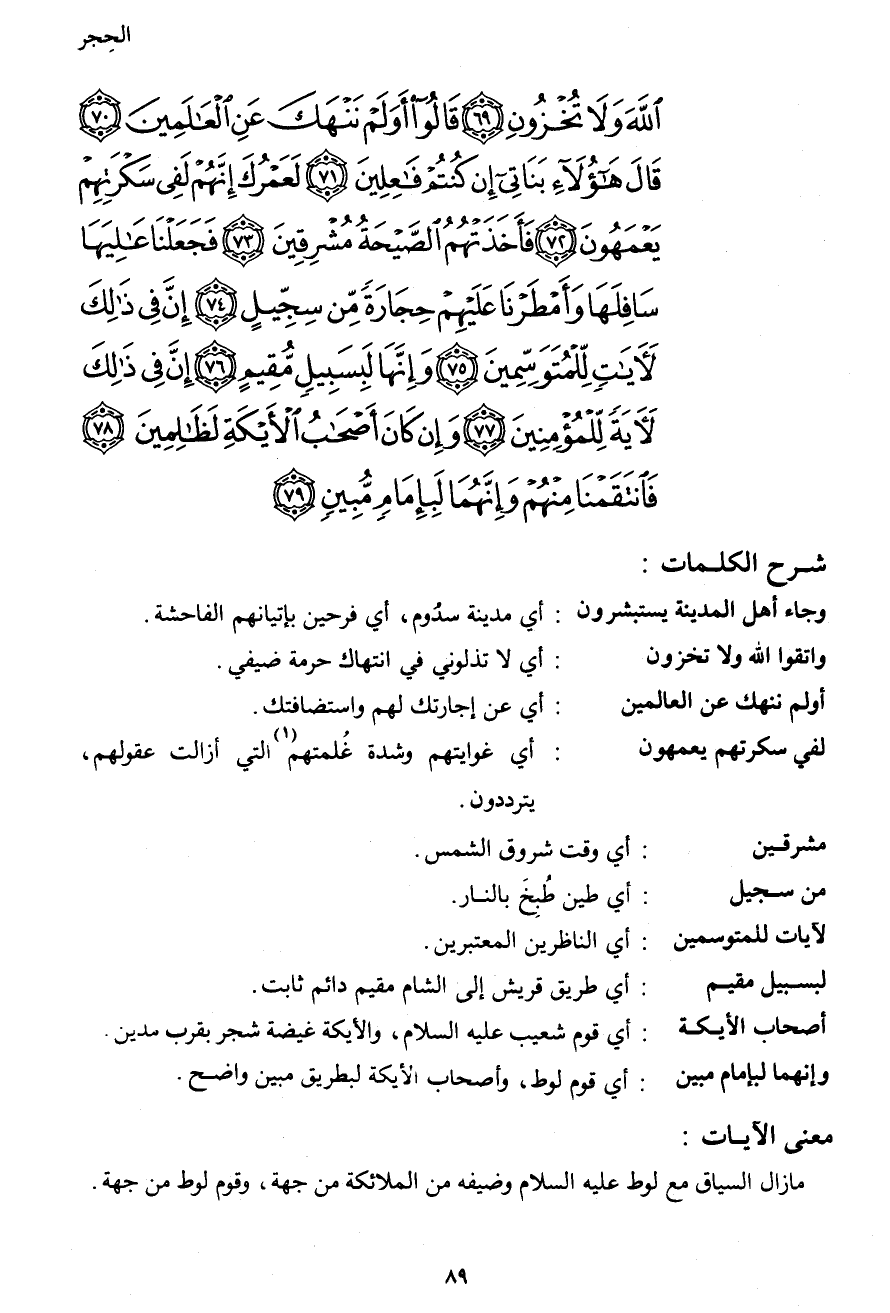 الحِجر
ٱللَّهَ وَلَا تُخۡزُونِ ٦٩ قَالُوٓاْ أَوَلَمۡ نَنۡهَكَ عَنِ ٱلۡعَٰلَمِينَ ٧٠
قَالَ هَٰٓؤُلَآءِ بَنَاتِيٓ إِن كُنتُمۡ فَٰعِلِينَ ٧١ لَعَمۡرُكَ إِنَّهُمۡ لَفِي سَكۡرَتِهِمۡ
يَعۡمَهُونَ ٧٢ فَأَخَذَتۡهُمُ ٱلصَّيۡحَةُ مُشۡرِقِينَ ٧٣ فَجَعَلۡنَا عَٰلِيَهَا
سَافِلَهَا وَأَمۡطَرۡنَا عَلَيۡهِمۡ حِجَارَةٗ مِّن سِجِّيلٍ ٧٤ إِنَّ فِي ذَٰلِكَ
لَأٓيَٰتٖ لِّلۡمُتَوَسِّمِينَ ٧٥ وَإِنَّهَا لَبِسَبِيلٖ مُّقِيمٍ ٧٦ إِنَّ فِي ذَٰلِكَ
لَأٓيَةٗ لِّلۡمُؤۡمِنِينَ ٧٧ وَإِن كَانَ أَصۡحَٰبُ ٱلۡأَيۡكَةِ لَظَٰلِمِينَ ٧٨
فَٱنتَقَمۡنَا مِنۡهُمۡ وَإِنَّهُمَا لَبِإِمَامٖ مُّبِينٖ ٧٩
شرح الكلمات :
وجاء أهل المدينة يستبشرون : أي مدينة سدُوم، أي فرحين بإتيانهم الفاحشة .
واتقوا الله ولا تخزون : أي لا تذلوني في انتهاك حرمة ضيفي .
أولم ننهك عن العالمين : أي عن إجارتك لهم واستضافتك .
لفي سكرتهم يعمهون : أي غوايتهم وشدة غُلمتهم(١) التي أزالت عقولهم،
يترددون .
مشرقين : أي وقت شروق الشمس .
من سجيل : أي طين طُبِخَ بالنار.
لآيات للمتوسمين : أي الناظرين المعتبرين .
لبسبيل مقيم : أي طريق قريش إلى الشام مقيم دائم ثابت .
أصحاب الأيكة : أي قوم شعيب عليه السلام، والأيكة غيضة شجر بقرب مدين .
وإنهما لبإمام مبين : أي قوم لوط، وأصحاب الأيكة لبطريق مبين واضح .
معنى الآيات :
مازال السياق مع لوط عليه السلام وضيفه من الملائكة من جهة، وقوم لوط من جهة .
٨٩